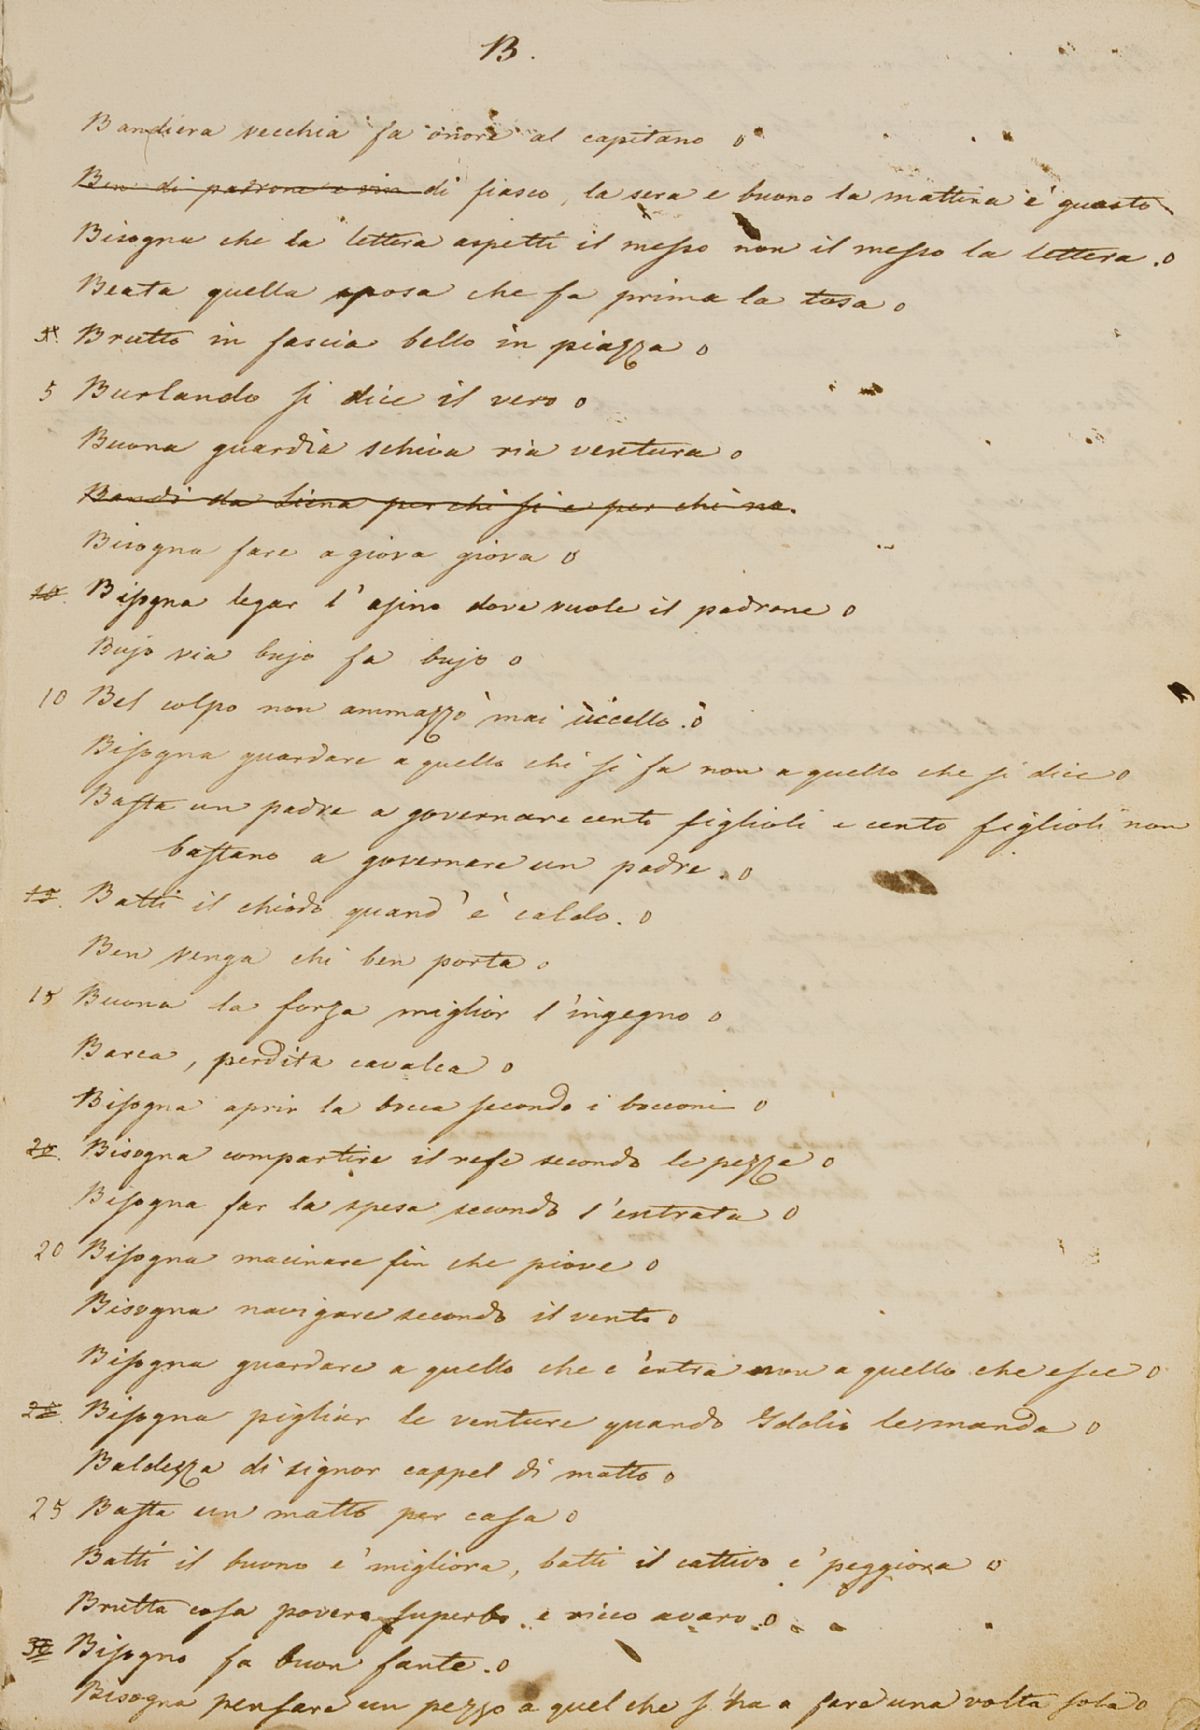 B.
Bandiera vecchia fa onore al capitano o
Ben di padrone e vin di fiasco, la sera e buono la mattina è guasto
Bisogna che la lettera aspetti il messo non il messo la lettera. o
Beata quella sposa che fa prima la tosa o
5. Brutto in fascia bello in piazza o
5 Burlando si dice il vero o
Buona guardia schiva ria ventura o
Bandi da Siena per chi si e per chi no.
Bisogna fare a giova giova o
10. Bisogna legar l'asino dove vuole il padrone o
Bujo via bujo fa bujo o
10 Bel colpo non ammazzò mai uccello. o
Bisogna guardare a quello chi si fa non a quello che si dice o
Basta un padre a governare cento figlioli e cento figlioli non
bastano a governare un padre. o
15. Batti il chiodo quand'è caldo. o
Ben venga chi ben porta o
15 Buona la forza miglior l'ingegno o
Barca, perdita cavalca o
Bisogna aprir la bocca secondo i bocconi o
20. Bisogna compartire il refe secondo le pezze o
Bisogna far la spesa secondo l'entrata o
20 Bisogna macinare fin che piove o
Bisogna navigare secondo il vento o
Bisogna guardare a quello che c'entra non a quello che esce o
25. Bisogna pigliar le venture quando Iddio le manda o
Baldezza di signor cappel di matto o
25 Basta un matto per casa o
Batti il buono e' migliora, batti il cattivo e' peggiora o
Brutta cosa povero superbo e ricco avaro. o
30 Bisogno fa buon fante. o
Bisogna pensare un pezzo a quel che s'ha a fare una volta sola o